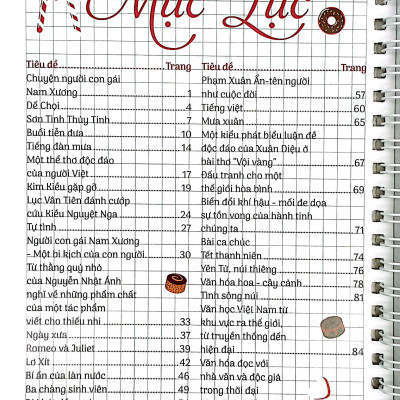 Mục Lục
Tiêu đề Trang
Chuyện người con gái
Nam Xương 1
Dế Chọi 4
Sơn Tinh Thủy Tinh 7
Buổi tiễn đưa 10
Tiếng đàn mưa 14
Một thể thơ độc đáo
của người Việt 17
Kim Kiều gặp gỡ 19
Lục Vân Tiên đánh cướp
cứu Kiều Nguyệt Nga 24
Tự tình 27
Người con gái Nam Xương
- Một bi kịch của con người 30
Từ thằng quỷ nhỏ
của Nguyễn Nhật Ánh
nghĩ về những phẩm chất
của một tác phẩm
viết cho thiếu nhi 33
Ngày xưa 37
Romeo và Juliet 39
Lơ Xít 42
Bí ẩn của làn nước 46
Ba chàng sinh viên 49
Tiêu đề Trang
Phạm Xuân Ẩn-tên người
như cuộc đời 57
Tiếng việt 60
Mưa xuân 65
Một kiểu phát biểu luận đề
độc đáo của Xuân Diệu ở
bài thơ "Vội vàng" 67
Đấu tranh cho một
thế giới hòa bình 69
Biến đổi khí hậu - mối đe dọa
sự tồn vong của hành tinh
chúng ta 71
Bài ca chúc
Tết thanh niên 74
Yên Tử, núi thiêng 76
Văn hóa hoa - cây cảnh 78
Tình sông núi 81
Văn học Việt Nam từ
khu vực ra thế giới,
từ truyền thống đến
hiện đại 84
Văn hóa đọc với
nhà văn và độc giả
trong thời đại